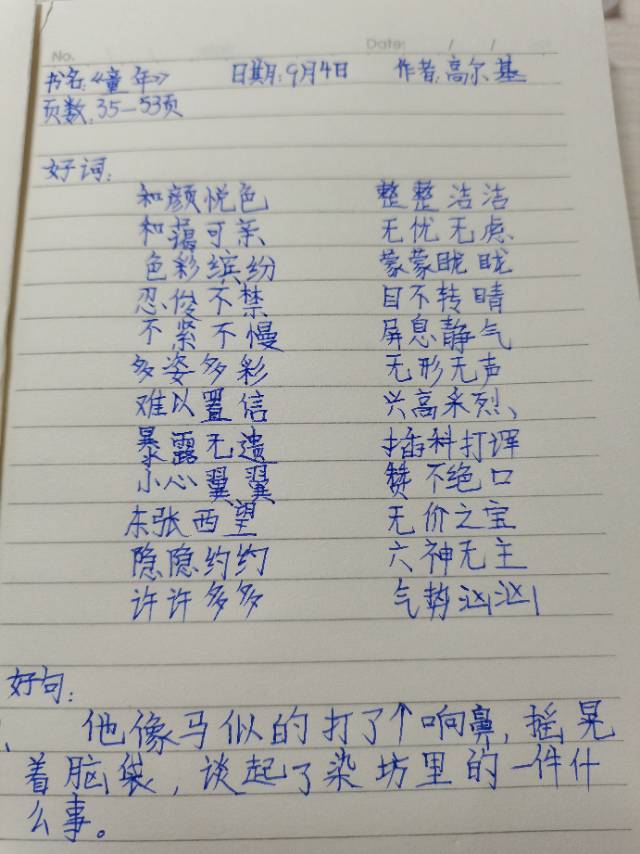 No. Date: / /
书名:《童年》 日期:9月4日 作者:高尔基
页数:35—53页
好词:
和颜悦色 整整洁洁
和蔼可亲 无忧无虑、
色彩缤纷 蒙蒙眬眬
忍俊不禁 目不转睛
不紧不慢 屏息静气
多姿多彩 无形无声
难以置信 兴高采烈、
暴露无遗 插科打诨
小心翼翼 赞不绝口
东张西望 无价之宝
隐隐约约 六神无主
许许多多 气势汹汹
好句:
、他像马似的打了个响鼻,摇晃
着脑袋,谈起了染坊里的一件什
么事。